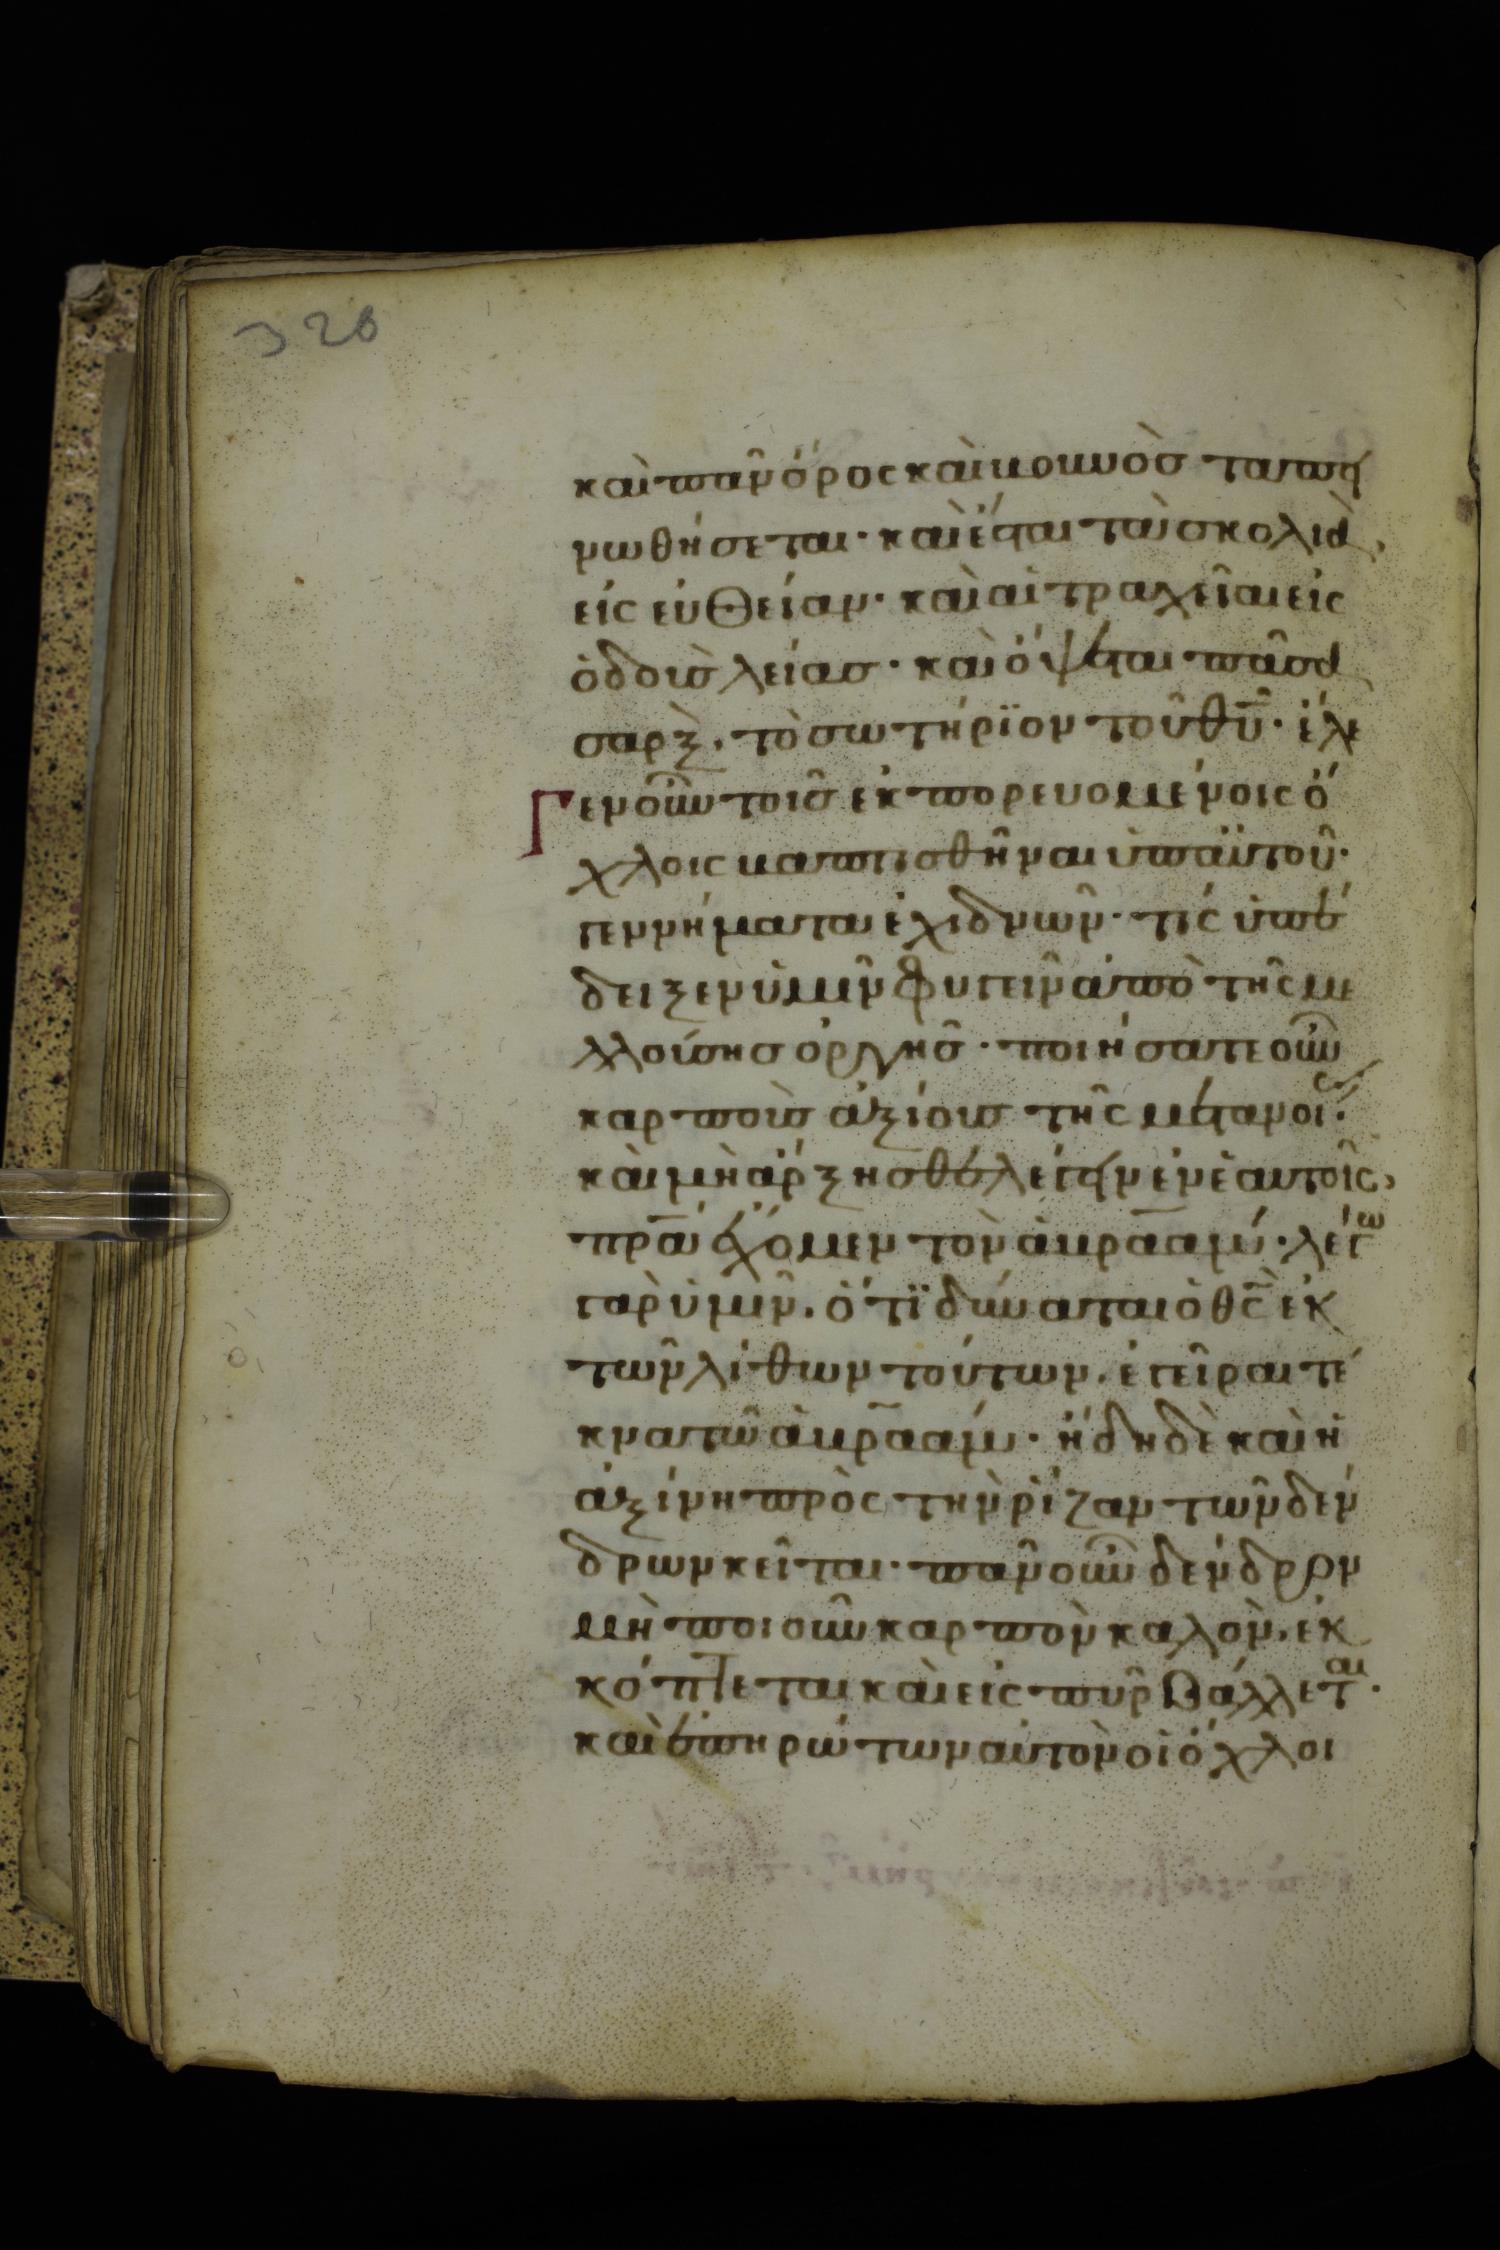 328
καὶ πᾶν ὄρος καὶ βουνὸς ταπει
νωθήσεται· καὶ ἔσται τὰ σκολιὰ,
εἰς εὐθείαν· καὶ αἱ τραχεῖαι εἰς
ὁδοὺς λείας· καὶ ὄψεται πᾶσα
σὰρξ, τὸ σωτήριον τοῦ θ̅υ̅· ἔλε
γεν οὖν τοῖς ἐκπορευομένοις ὄ
χλοις βαπτισθῆναι ὑπ' αὐτοῦ·
γεννήματα ἐχιδνῶν· τίς ὑπέ
δειξεν ὑμῖν φυγεῖν ἀπὸ τῆς με
λλούσης ὀργῆς· ποιήσατε οὖν
καρποὺς ἀξίους τῆς μετανοίας·
καὶ μὴ ἄρξησθε λέγειν ἐν ἑαυτοῖς,
π̅ρ̅α̅ ἔχομεν τὸν ἀβραάμ· λέγω
γὰρ ὑμῖν, ὅτι δύναται ὁ θ̅ς̅ ἐκ
τῶν λίθων τούτων, ἐγεῖραι τέ
κνα τῶ ἀβραάμ· ἤδη δὲ καὶ ἡ
ἀξίνη πρὸς τὴν ῥίζαν τῶν δέν
δρων κεῖται· πᾶν οὖν δένδρον
μὴ ποιοῦν καρπὸν καλὸν, ἐκ
κόπτεται καὶ εἰς πῦρ βάλλεται·
καὶ ἐπηρώτων αὐτὸν οἱ ὄχλοι